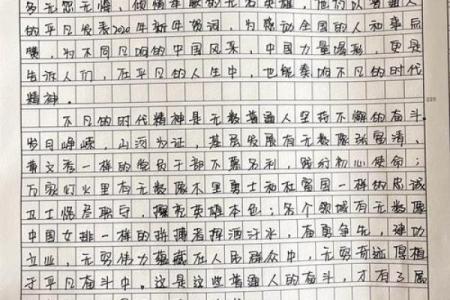 多无怨无悔，倾情奉献的无名英雄，他们以普通人
的平凡发表2020年新年贺词，为感动全国的人和事点
赞，为不同凡响的中国风采，中国力量喝彩，更是
告诉人们，在平凡的人生中，也能奏响不凡的时代
精神。
不凡的时代精神是无数普通人坚持不懈的奋斗。
岁月峥嵘，山河为证，基层发展有无数像张富清、
黄文秀一样的党员干部不慕名利，践行初心使命；
万家灯火里有无数像木里勇士和杜富国一样的忠诚
卫士恪尽职守，擦亮英雄本色；各个领域有无数像
中国女排一样的拼搏者挥洒汗水，奋勇争先，建功
立业，无穷伟力蕴藏在人民群众中，无穷奇迹厚植
于平凡奋斗中。这是这些普通人的奋斗，才有了属